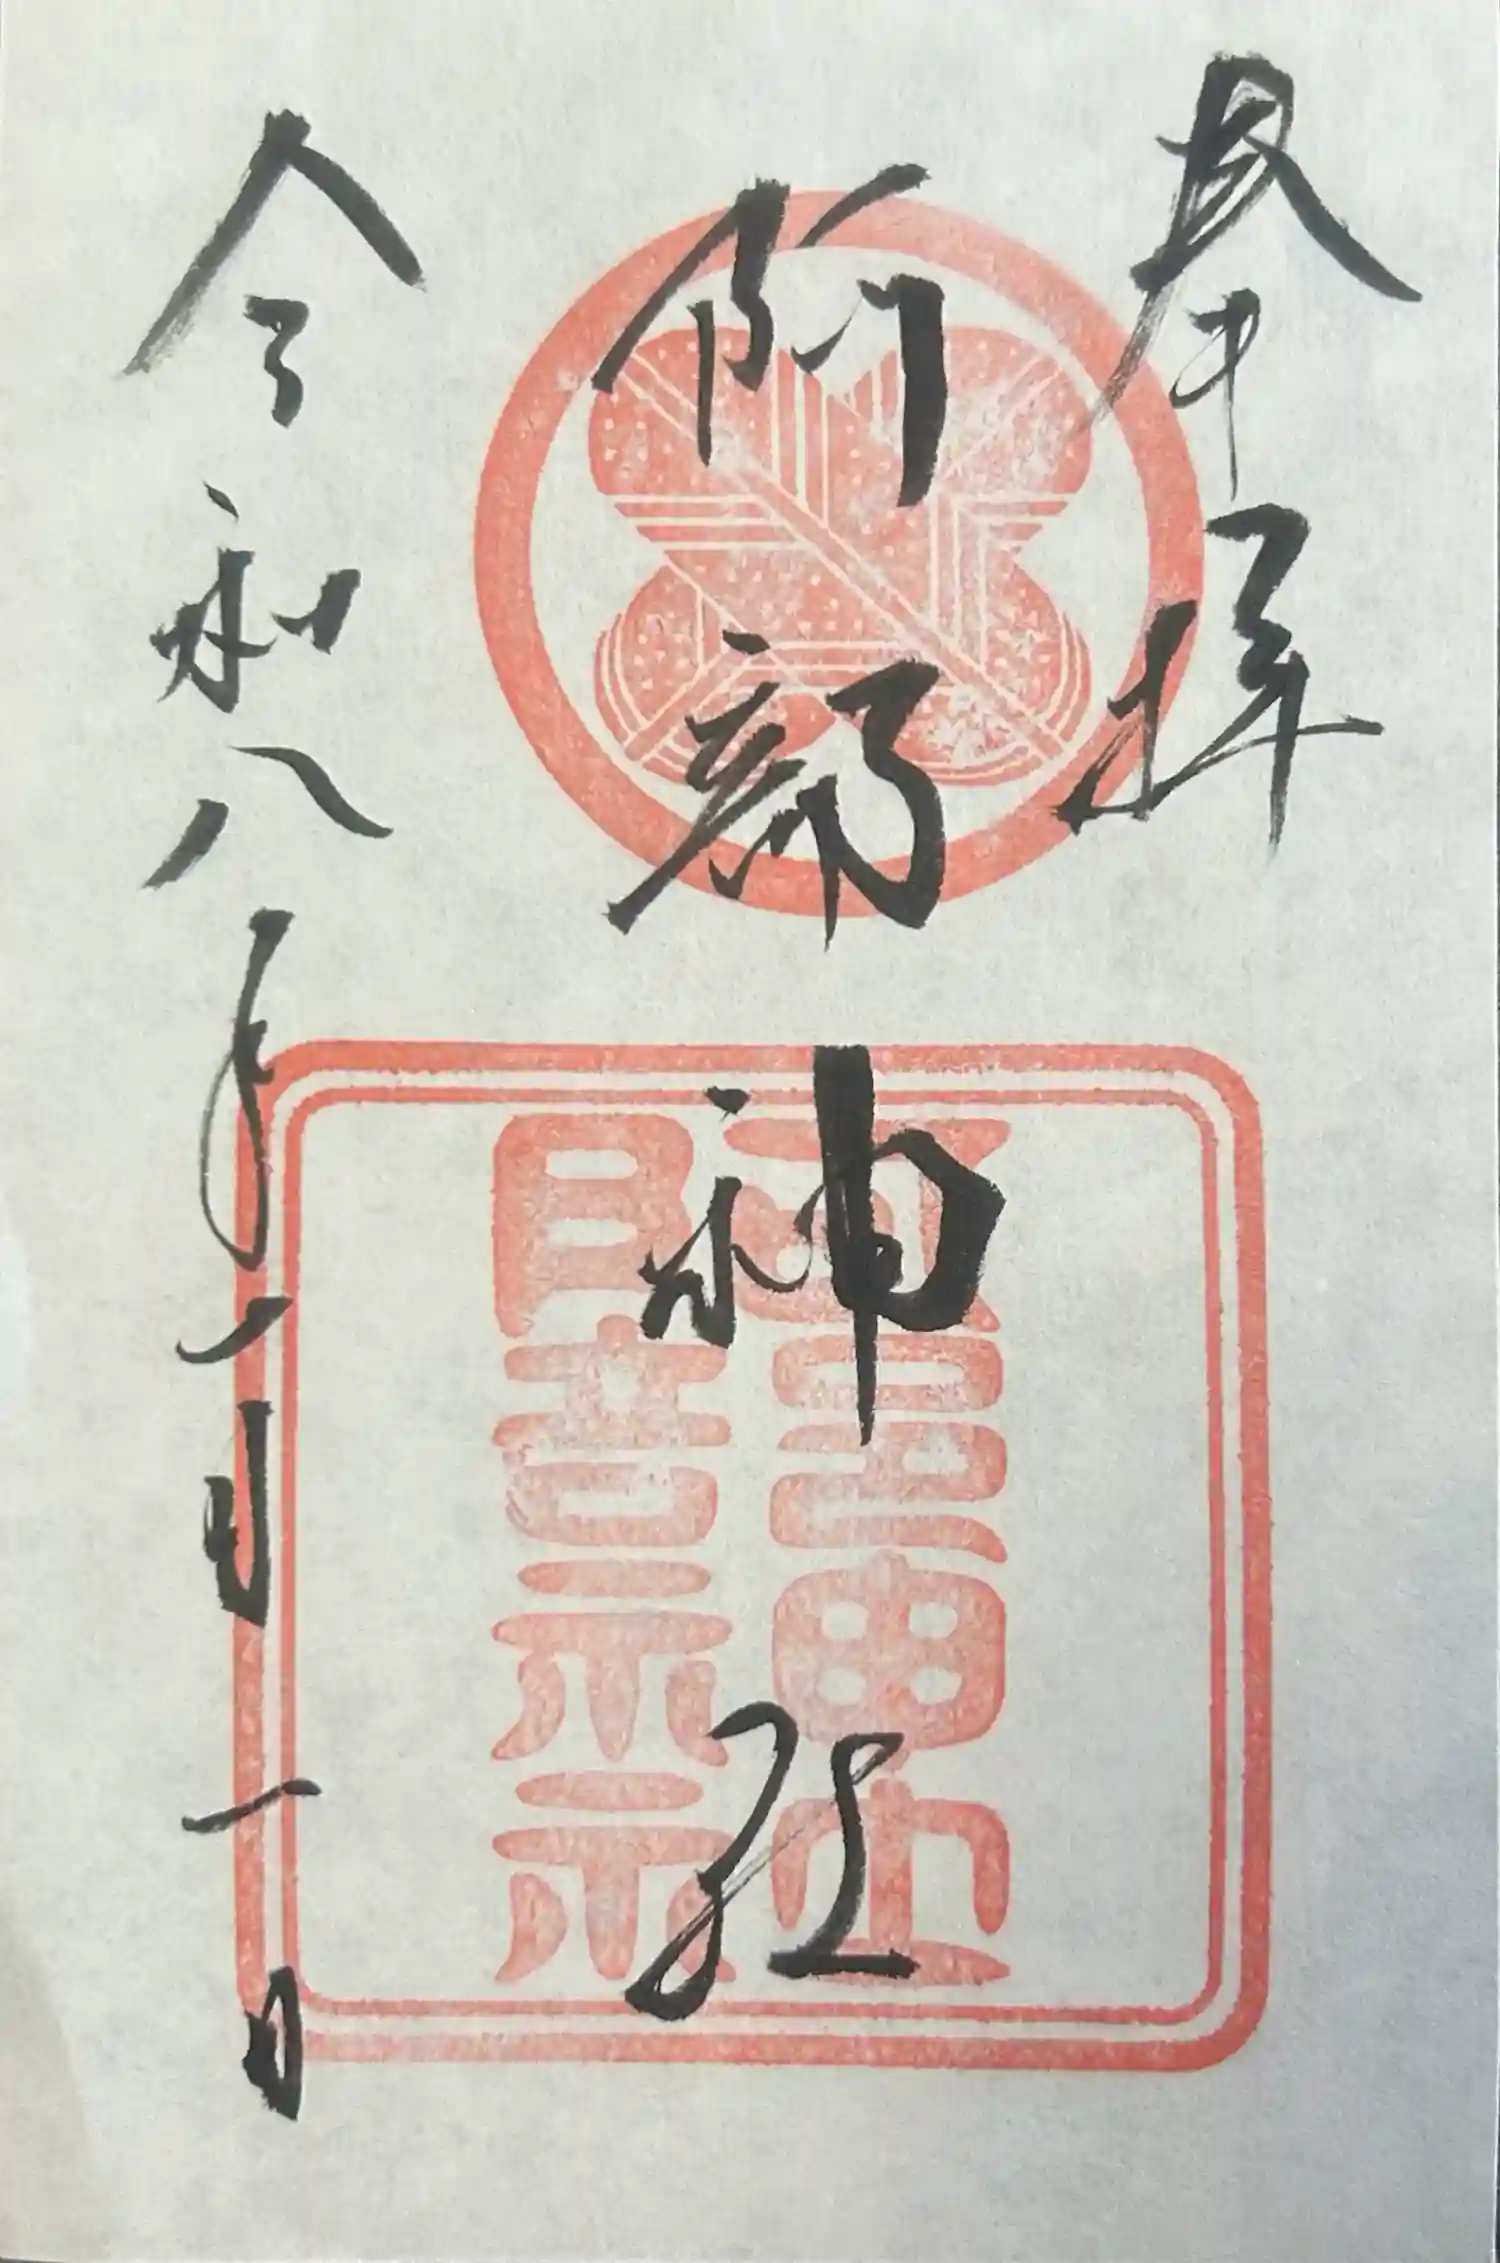 奉拝
服部神社
令和八年一月一日
服部神社